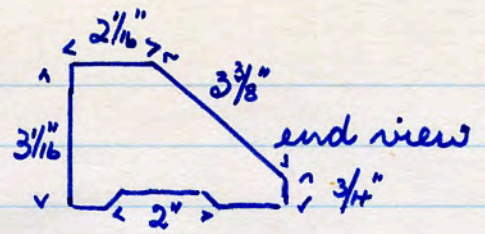 2 1/16"
3 3/8"
3 1/16"
end view
3/4"
2"